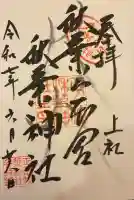 奉拝
上社
秋葉山本宮
秋葉神社
令和七年六月十六日